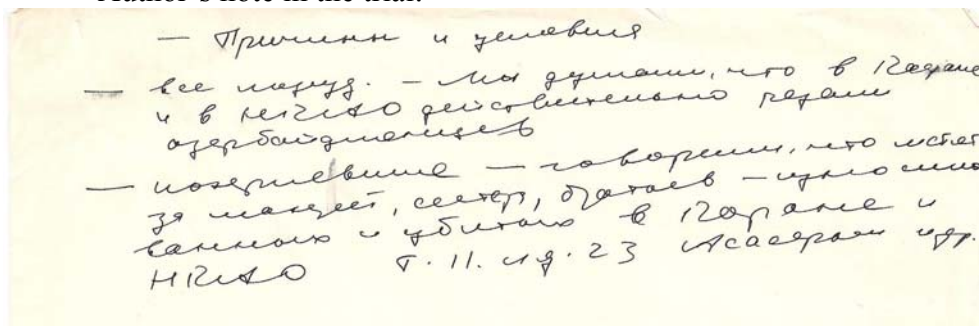 Author's note in the trial.
— Причины и условия
— все подсуд. — Мы думали, что в Кафане
и в НКАО действительно резали
азербайджанцев
— потерпевшие — говорили, что мстят
за матерей, сестер, братьев — изнасило
ванных и убитых в Кафане и
НКАО Т. 11. л.д. 23 и др.